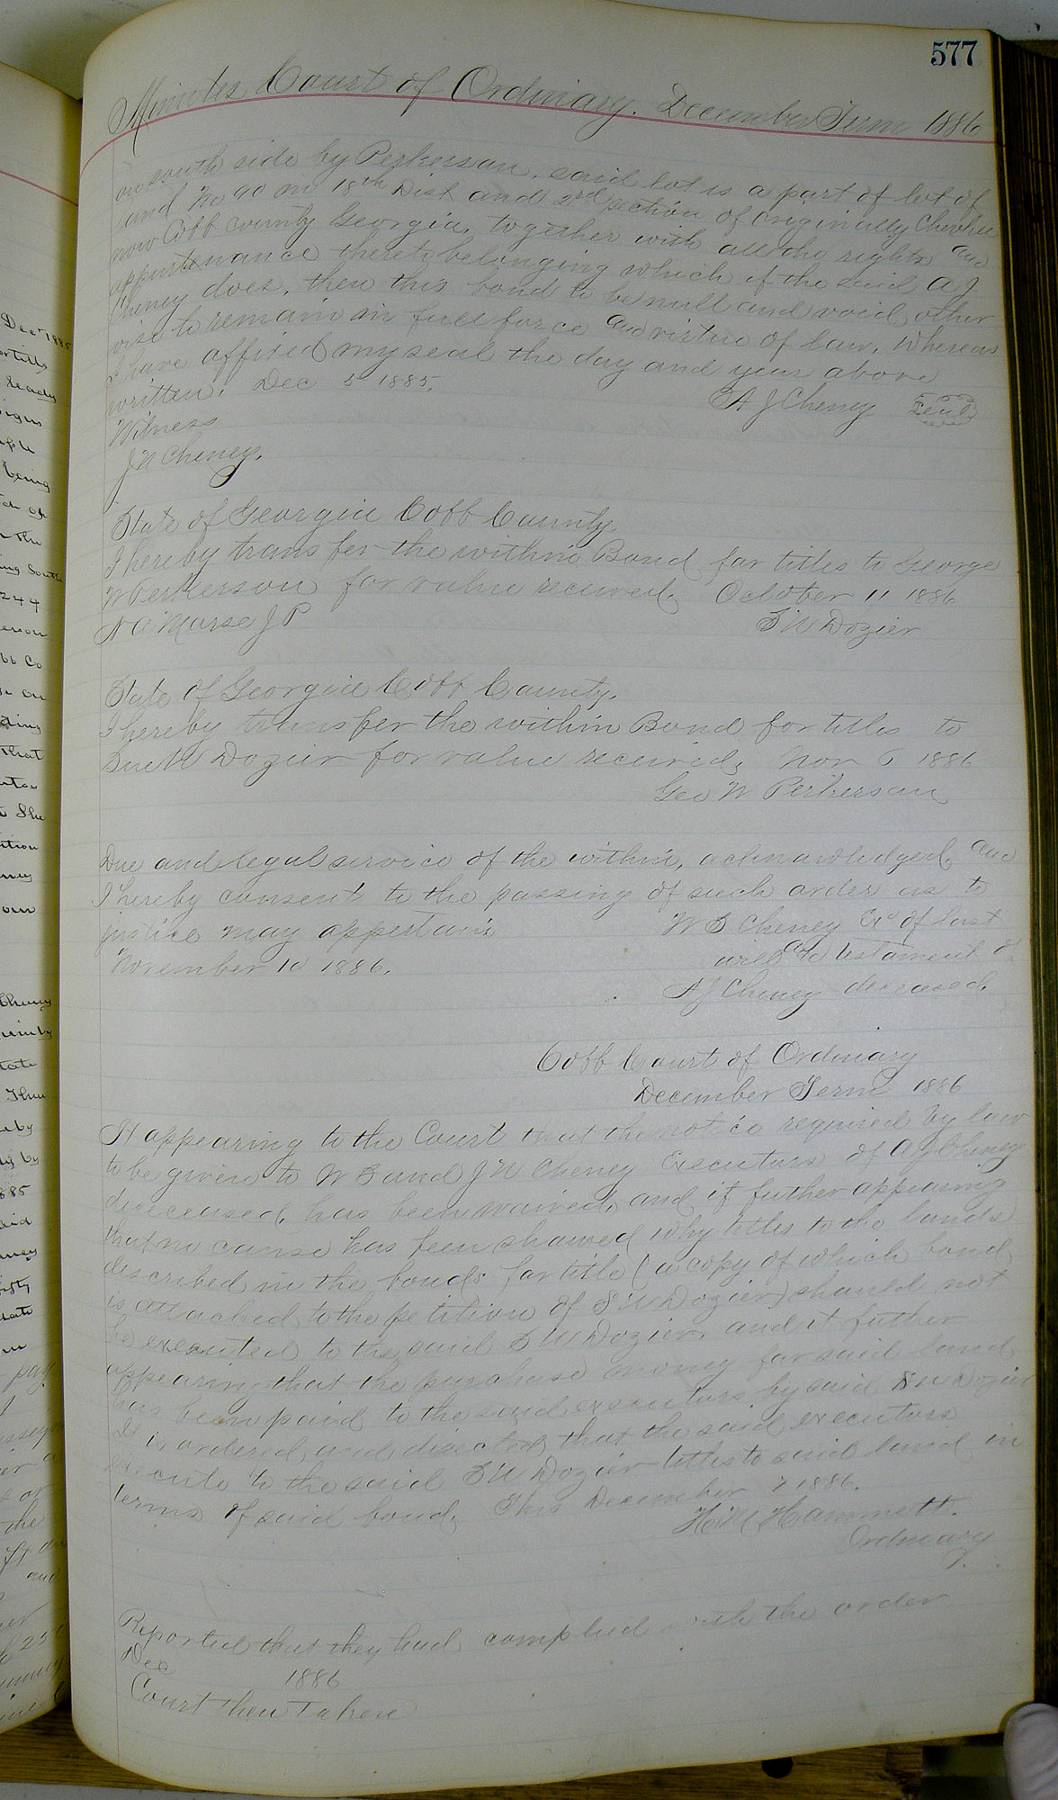 577
Minutes Court of Ordinary. December Term 1886
on south side by Perkerson, said lot is a part of lot of
land No 90 in 18th Dist and 2nd section of originally Cherokee
now Cobb county Georgia, together with all the rights and
appurtenance thereto belonging which if the said A J
Cheney does, then this bond to be null and void, other
wise to remain in full force and virtue of law, Whereas
I have affixed my seal the day and year above
written. Dec 5 1885.
A J Cheney Seal
Witness
J N Cheney.
State of Georgia Cobb County,
I hereby transfer the within Bond for titles to George
W Perkerson for value received, October 11 1886
N A Morse J P
S W Dozier
State of Georgia Cobb County,
I hereby transfer the within Bond for titles to
Dozier for value received, Nov 6 1886
Geo W Perkerson
Due and legal service of the within, acknowledged, and
I hereby consent to the passing of such order as to
justice may appertain
W B Cheney Exr of last
will and testament of
November 10 1886.
A J Cheney deceased.
Cobb Court of Ordinary
December Term 1886
It appearing to the Court that the notice required by law
to be given to W B and J N Cheney Executors of A J Cheney
dececeased, has been waived, and it futher appearing
that no cause has been shawed why titles to the lands
described in the bonds for title (a copy of which bond
is attached to the petition of S W Dozier) should not
be executed to the said S W Dozier, and it futher
appearing that the purchase money for said land
has been paid to the said executors by said S W Dozier
It is ordered and directed that the said executors
execute to the said S W Dozier titles to said land in
terms of said bond, This December 7 1886.
H M Hammett.
Ordinary
Reported that they had complied with the order
Dec 1886
Court then taken